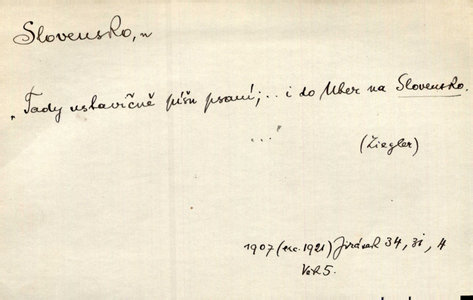 Slovensko, n
„Tady ustavičně píšu psaní; .. i do Uher na Slovensko.
..."
(Žiegler)
1907 (exc. 1921) Jirásek 34, 31, 4
Věk 5.